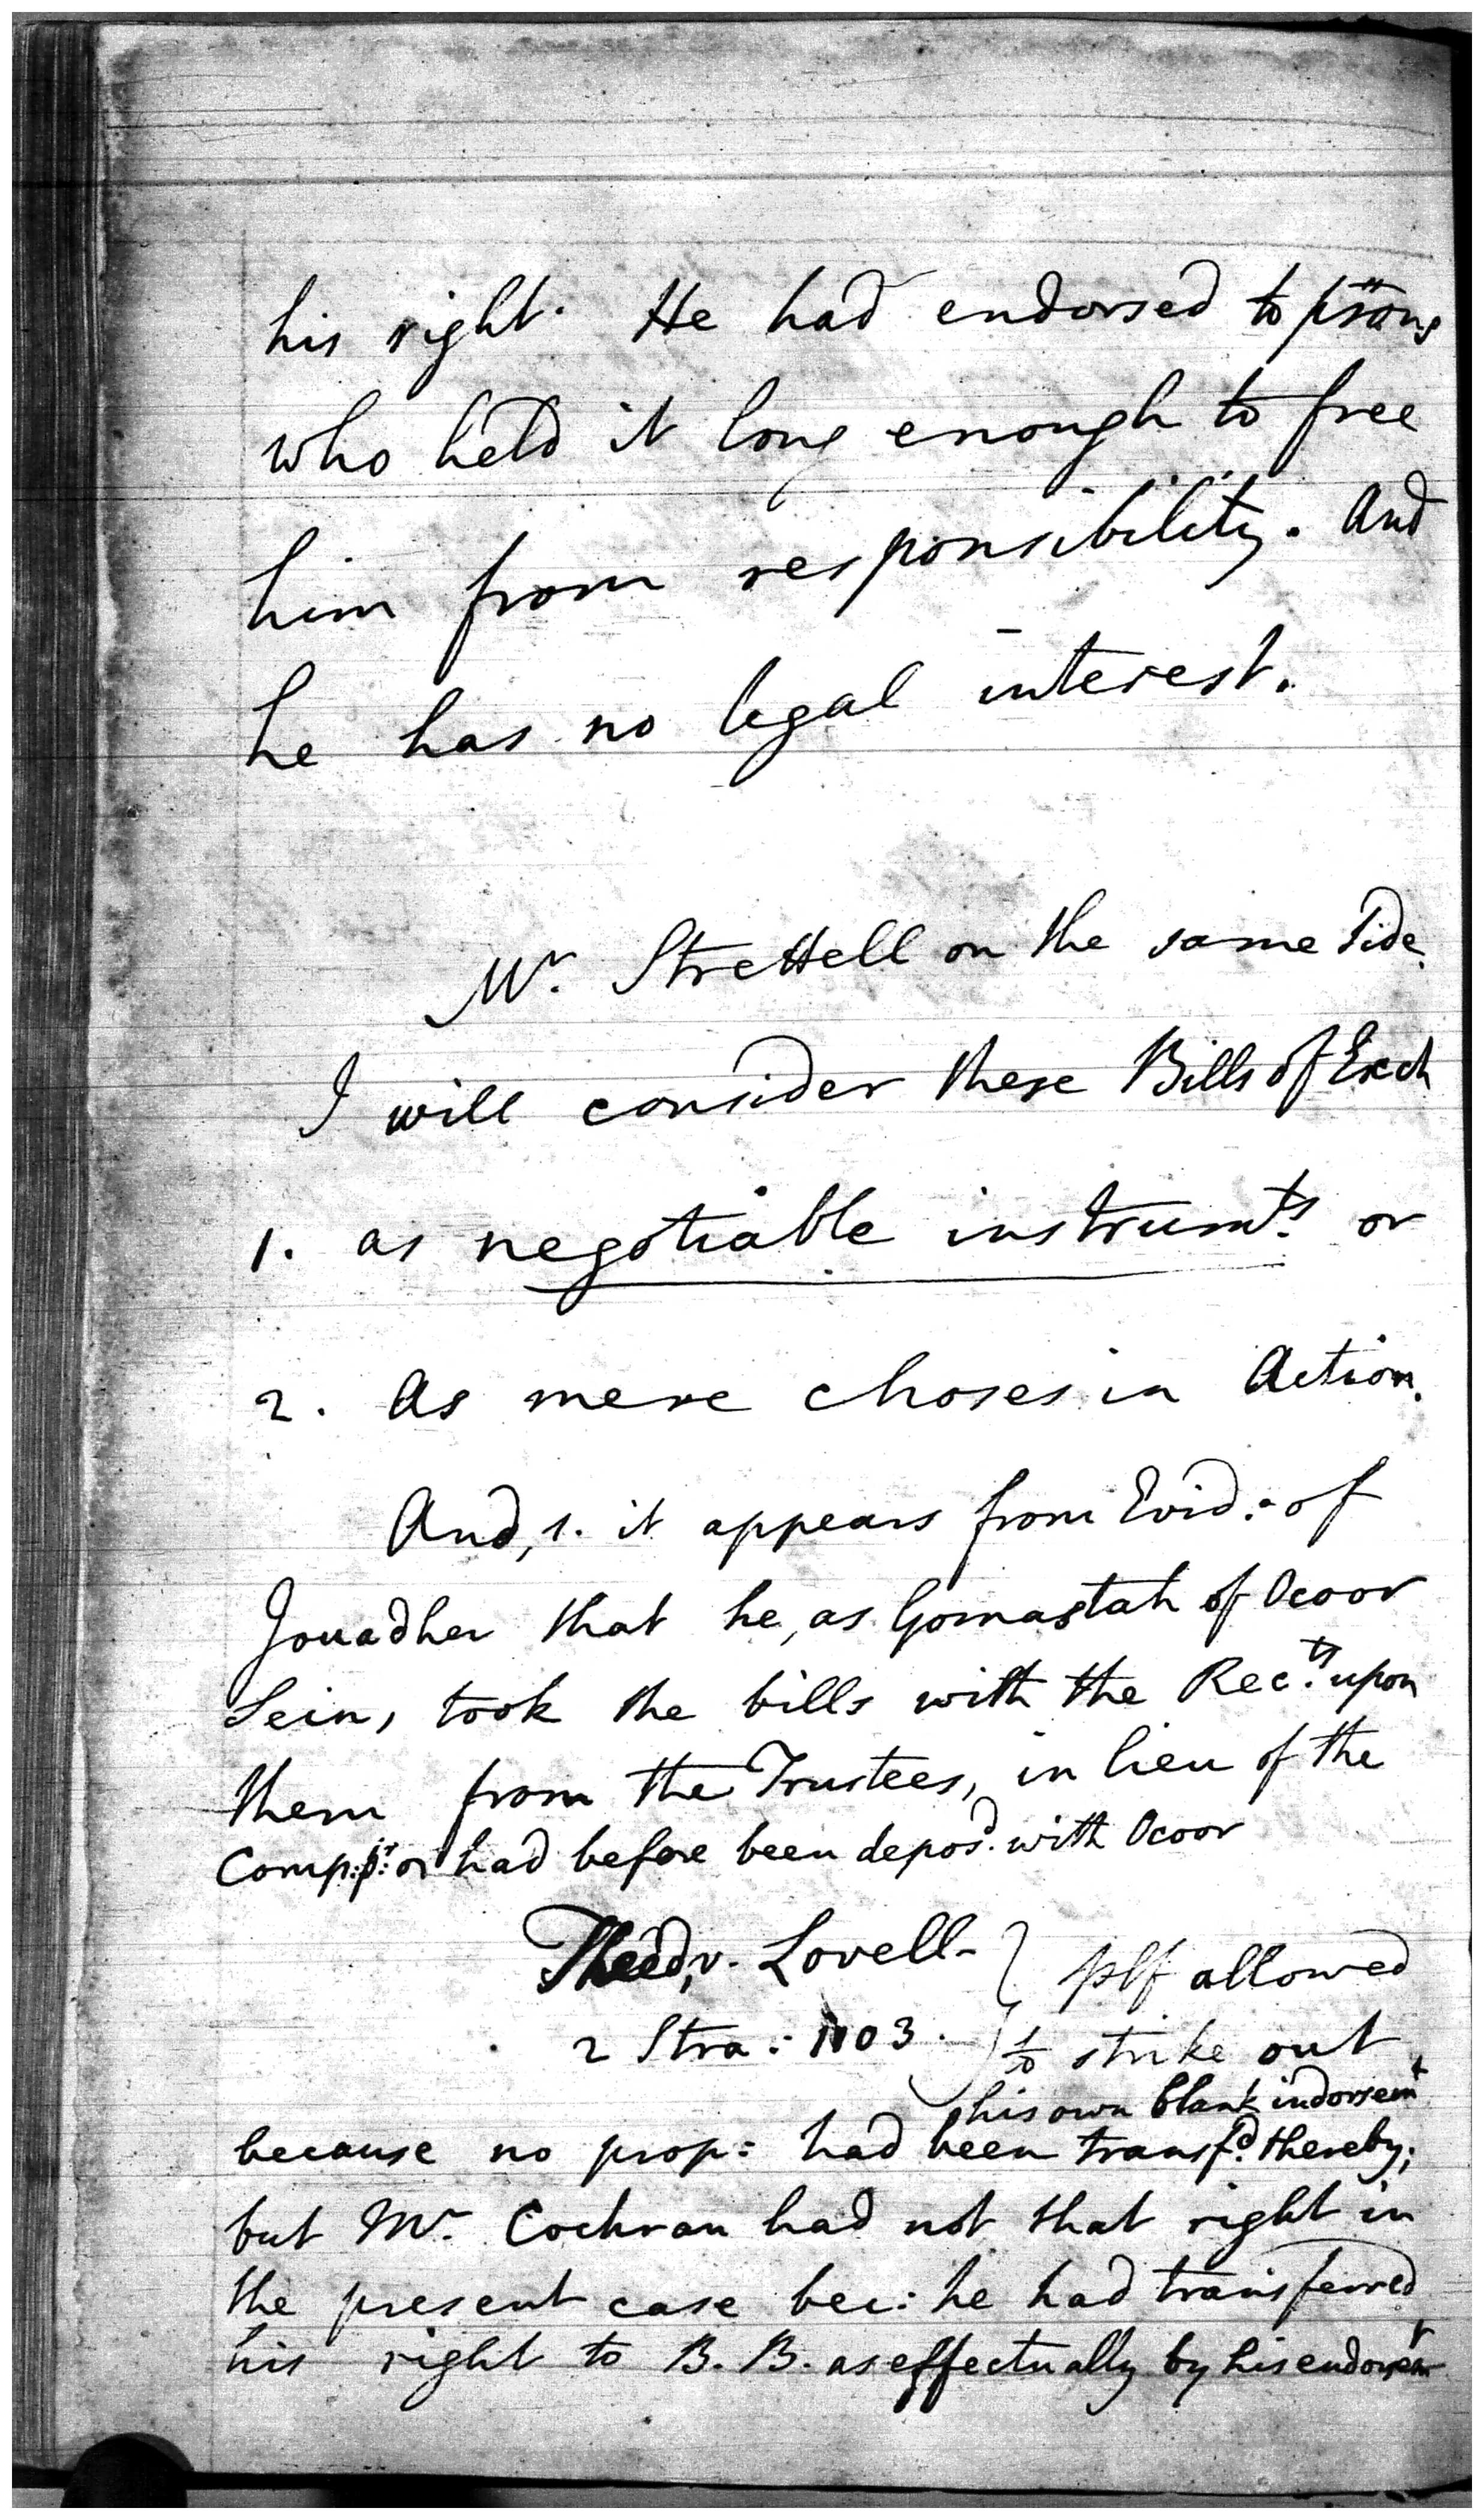 his right. He had endorsed to psons
who held it long enough to free
him from responsibility. And
he has no legal interest.
Mr. Strettell on the same side.
I will consider these Bills of Exch
1. as negotiable instrumts. or
2. As mere choses in Action.
And, 1. it appears from Evid: of
Jouadher that he, as Gomastah of Ocoor
Sein, took the bills with the Rects. upon
them from the Trustees, in lieu of the
had before been deposd. with Ocoor
Theed, v. Lovell - } plf allowed
2 Stra: 1103. } to strike out
his own blank indorsemt
because no prop: had been transfd. thereby;
but Mr. Cochran had not that right in
the present case bec: he had transferred
his right to B. B. as effectually by his endorsemt